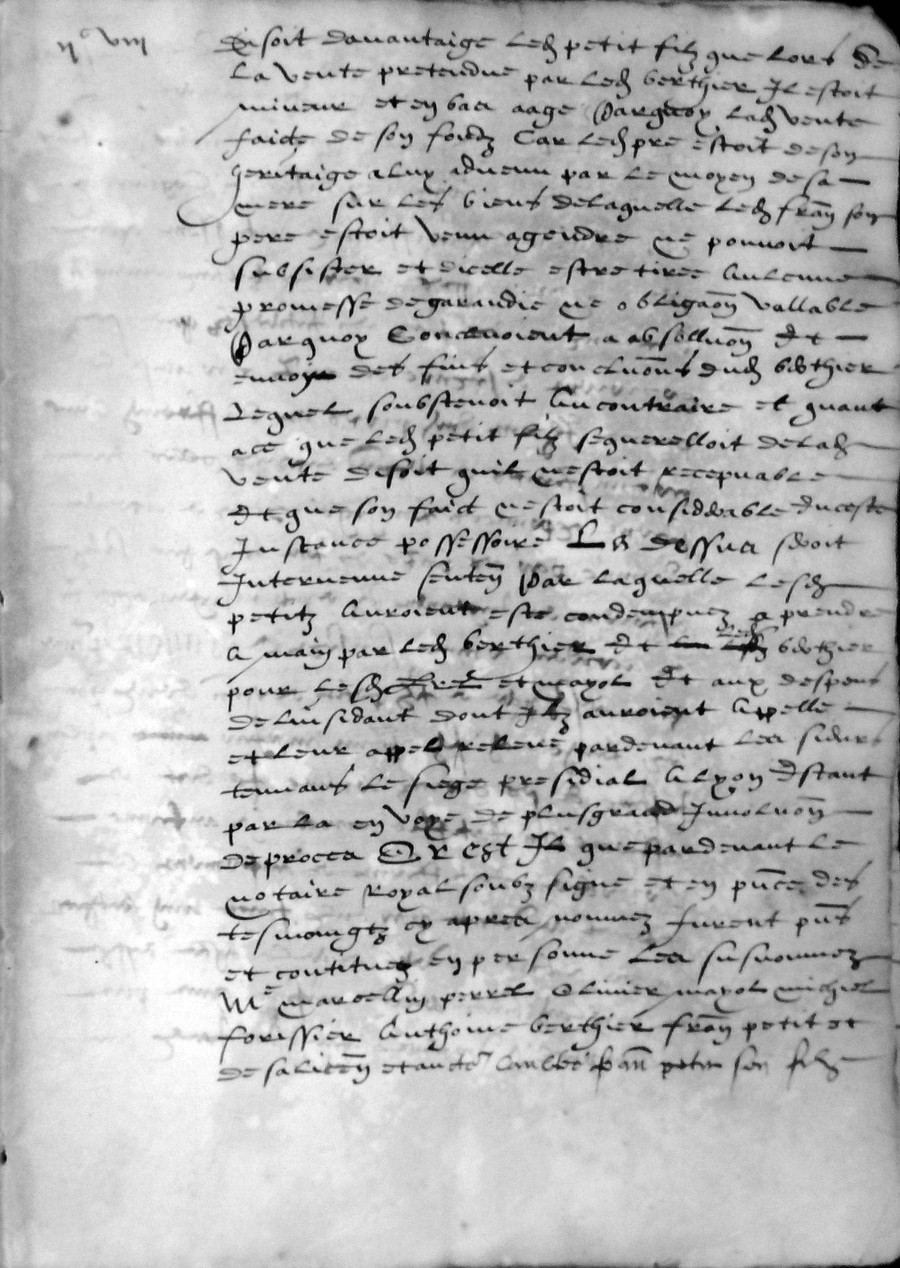 ii^c viii
Disoit davantaige led petit filz que lors de
la vente pretendue par led berthier il estoit
mineur et en bas aage parquoy lad vente
faicte de son fondz car led pre estoit de son
heritaige a luy advenu par le moyen de sa
mere sur les biens de laquelle led fran son
pere estoit venu a gendre ne pouvoit
subsister et dicelle estre tiree aulcune
promesse de garandie ne obligaon vallable
parquoy concluoient a absolluon et
envoye des fins et concluons dud berthier
lequel soubstenoit au contraire et quant
a ce que led petit filz se querelloit de lad
vente disoit quil nestoit recepvable
et que son faict nestoit considerable en ceste
instance possessoire La dessus seroit
intervenue senten par laquelle lesd
petitz auroient este condempnez a prendre
a main par led berthier et led berthier
pour lesd et mayol et aux despens
de lincidant dont ilz auroient appelle
et leur appel releve pardevant les sieurs
tenans le siege presidial a lyon estant
par la en voye de plus grand involuon
de proces Or est il que pardevant le
notaire royal soubz signe et en pnce des
tesmoingtz cy apres nommez furent pns
et contituez en personne les susnommez
Me marcellin perrel Olivier mayol michiel
forissier anthoine berthier fran petit et
de sa licen et aucte petit son filz